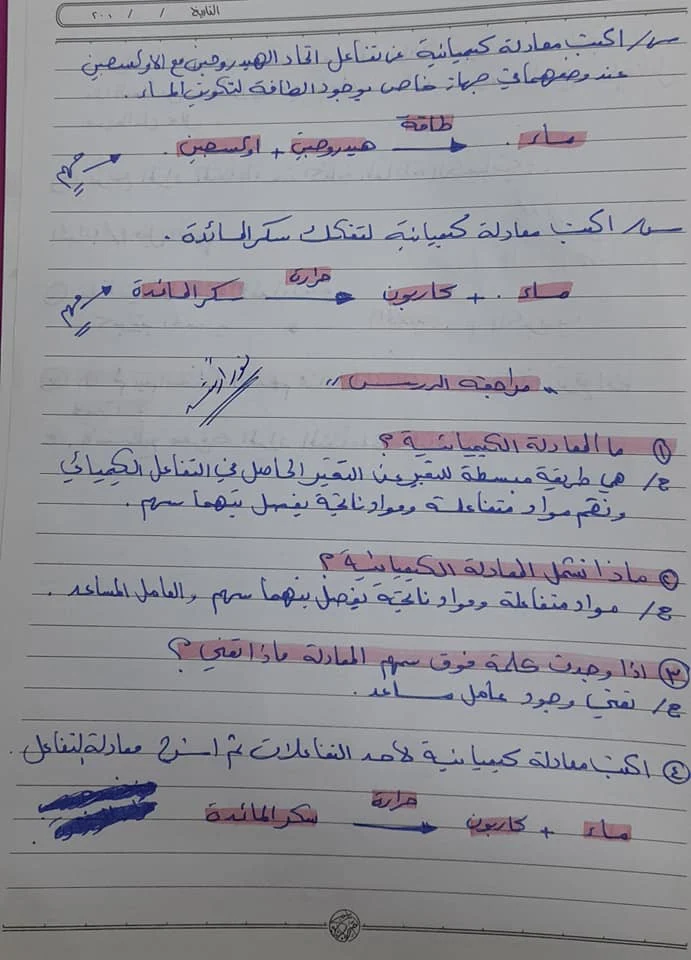 التاريخ / / ٢٠٠
س/ اكتب معادلة كيميائية عن تفاعل اتحاد الهيدروجين مع الاوكسجين
عند وضعهما في جهاز خاص بوجود الطاقة لتكوين الماء.
اوكسجين + هيدروجين طاقة ماء.
مهم
س/ اكتب معادلة كيميائية لتفكك سكر المائدة.
سكر المائدة حرارة كاربون + ماء.
مهم
" مراجعة الدرس "
① ما المعادلة الكيميائية؟
ج/ هي طريقة مبسطة للتعبير عن التغير الحاصل في التفاعل الكيميائي
وتضم مواد متفاعلة ومواد ناتجة يفصل بينهما سهم.
② ماذا تشمل المعادلة الكيميائية؟
ج/ مواد متفاعلة ومواد ناتجة يفصل بينهما سهم والعامل المساعد.
③ اذا وجدت كلمة فوق سهم المعادلة ماذا تعني؟
ج/ تعني وجود عامل مساعد.
④ اكتب معادلة كيميائية لأحد التفاعلات ثم اشرح معادلة التفاعل.
سكر المائدة حرارة كاربون + ماء